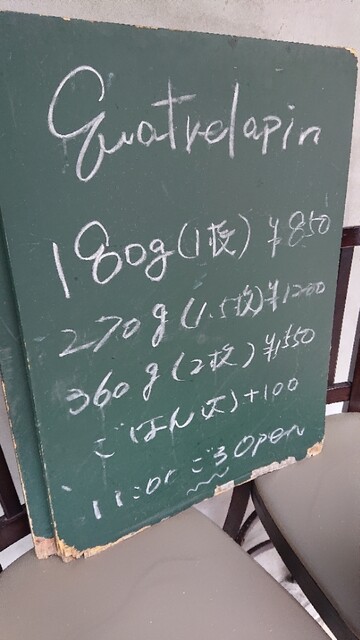 Quatrelapin
180g(1枚) ¥850
270g(1.5枚)¥1200
360g(2枚)¥1550
ごはん大)+100
11:00 ごろ Open